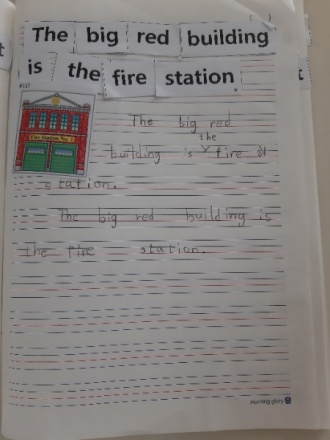 The big red building
is the fire station.
Fire Station No. 1
The big red
the
building is fire st
station.
The big red building is
the fire station.
morning glory